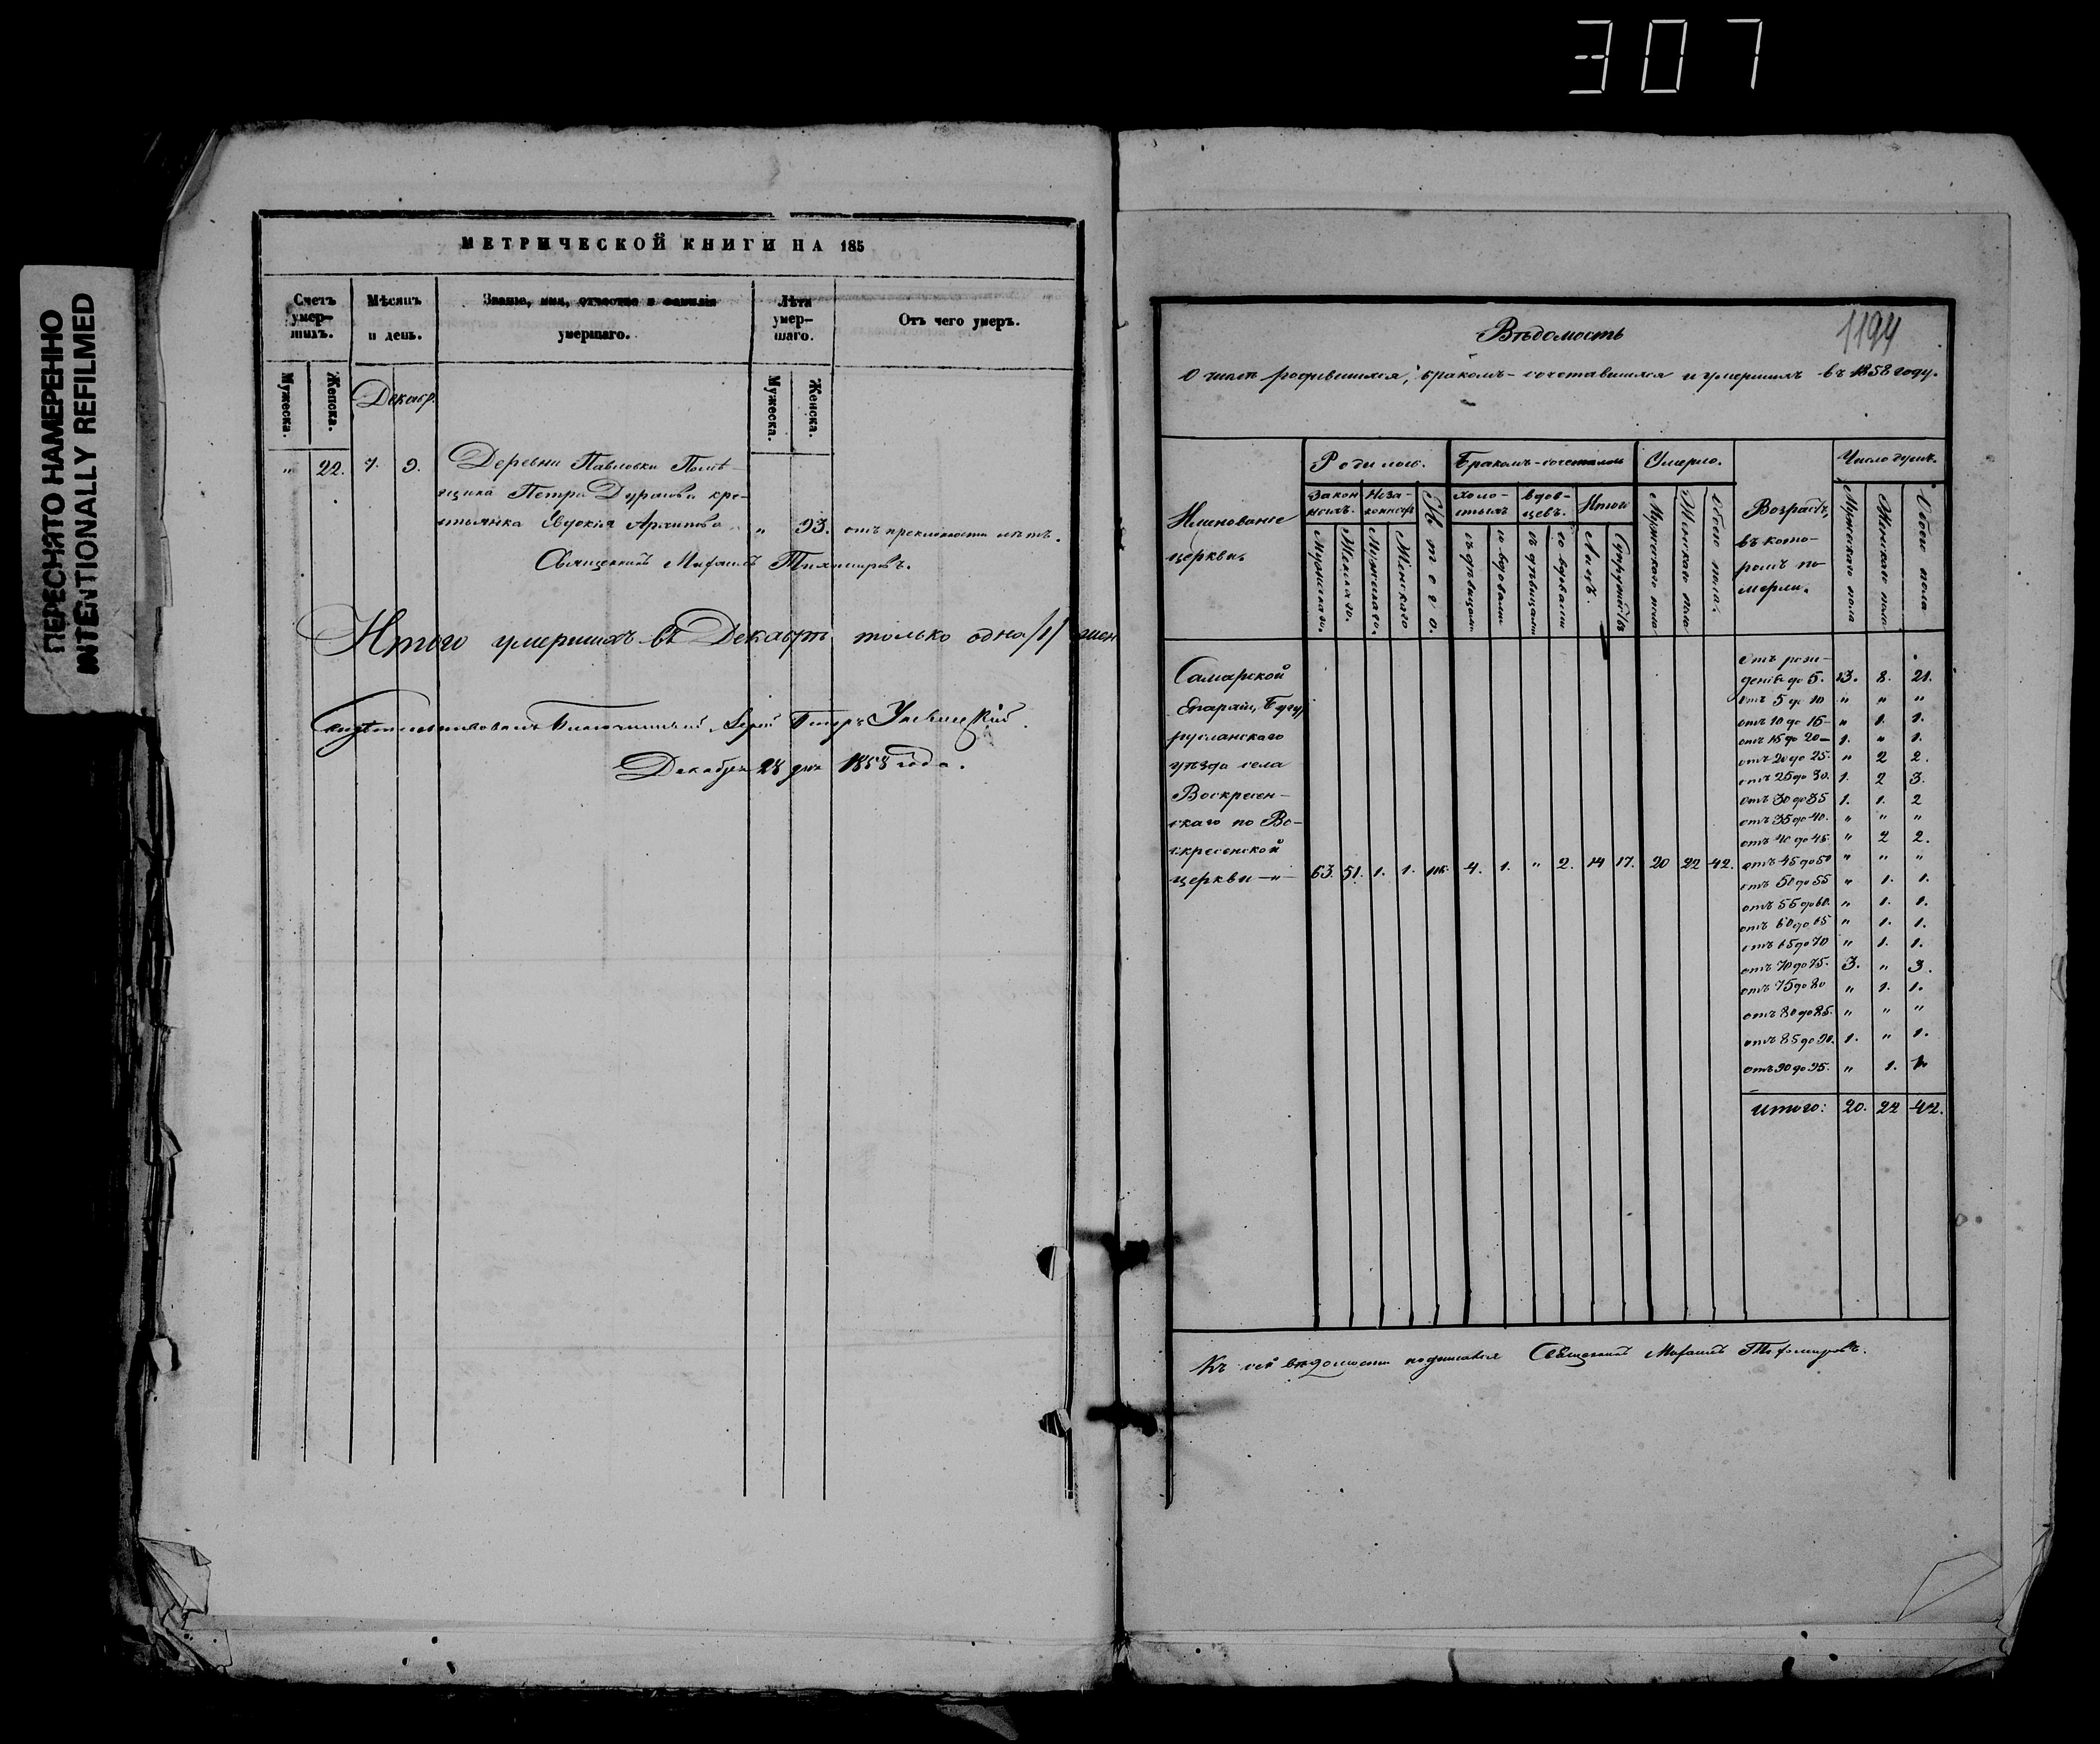 307
ПЕРЕСНЯТО НАМЕРЕННО
INTENTIONALLY REFILMED
МЕТРИЧЕСКОЙ КНИГИ НА 185
Счетъ умер-шихъ.
Мѣсяцъ и день.
Званіе, имя, отчество и фамилія умершаго.
Лѣта умер-шаго.
Отъ чего умеръ.
Мужеска. Женска.
Декабр.
Мужеска. Женска.
" 22. 7. 9. Деревни Павловки Помѣ-
щика Петра Дурасова кре-
стьянка Евдокія Архипова " 93. отъ преклонности лѣтъ.
Священникъ Михаилъ Тихомировъ.
Итого умершихъ въ Декабрѣ только одна /1/ жен
Свидѣтельствовалъ Благочинный Іерей Петръ
Декабря 28 дня 1858 года.
1194
Вѣдомость
О числѣ родившихся, бракомъ-сочетавшихся и умершихъ въ 1858 году.
Именованіе церкви.
Родилось.
Бракомъ-сочеталось
Умерло.
Возрастъ, въ кото-ромъ по мерли.
Число душъ.
Закон нныхъ.
Неза-коннор.
Итого.
холо-стыхъ
вдов-цевъ.
Итого
Мужескаго. Женскаго. Мужескаго. Женскаго
съ дѣвицами со вдовами съ дѣвицами со вдовами Лицъ. Супружествъ
Мужескаго пола Женскаго пола Обоего пола.
Мужескаго пола Женскаго пола Обоего пола
Самарской
Епархіи, Бугу
русланскаго
уѣзда села
Воскресен-
скаго по Во-
скресенской
церкви —"— 63. 51. 1. 1. 116. 4. 1. " 2. 14 17. 20 22 42.
Отъ рож-
денія до 5. 13. 8. 21.
отъ 5 до 10 " " "
отъ 10 до 15 " 1. 1.
отъ 15 до 20 1. " 1.
отъ 20 до 25. " 2 2.
отъ 25 до 30. 1. 2 3.
отъ 30 до 35 1. 1. 2
отъ 35 до 40. " " "
отъ 40 до 45. " 2 2.
отъ 45 до 50 " " "
отъ 50 до 55 " 1. 1.
отъ 55 до 60. " 1. 1.
отъ 60 до 65 " 1. 1.
отъ 65 до 70 " 1. 1.
отъ 70 до 75. 3. " 3.
отъ 75 до 80 " 1. 1.
отъ 80 до 85. " " "
отъ 85 до 90. 1. " 1.
отъ 90 до 95. " 1. 1.
Итого: 20. 22 42.
Къ сей вѣдомости подписался Священникъ Михаилъ Тихомировъ.